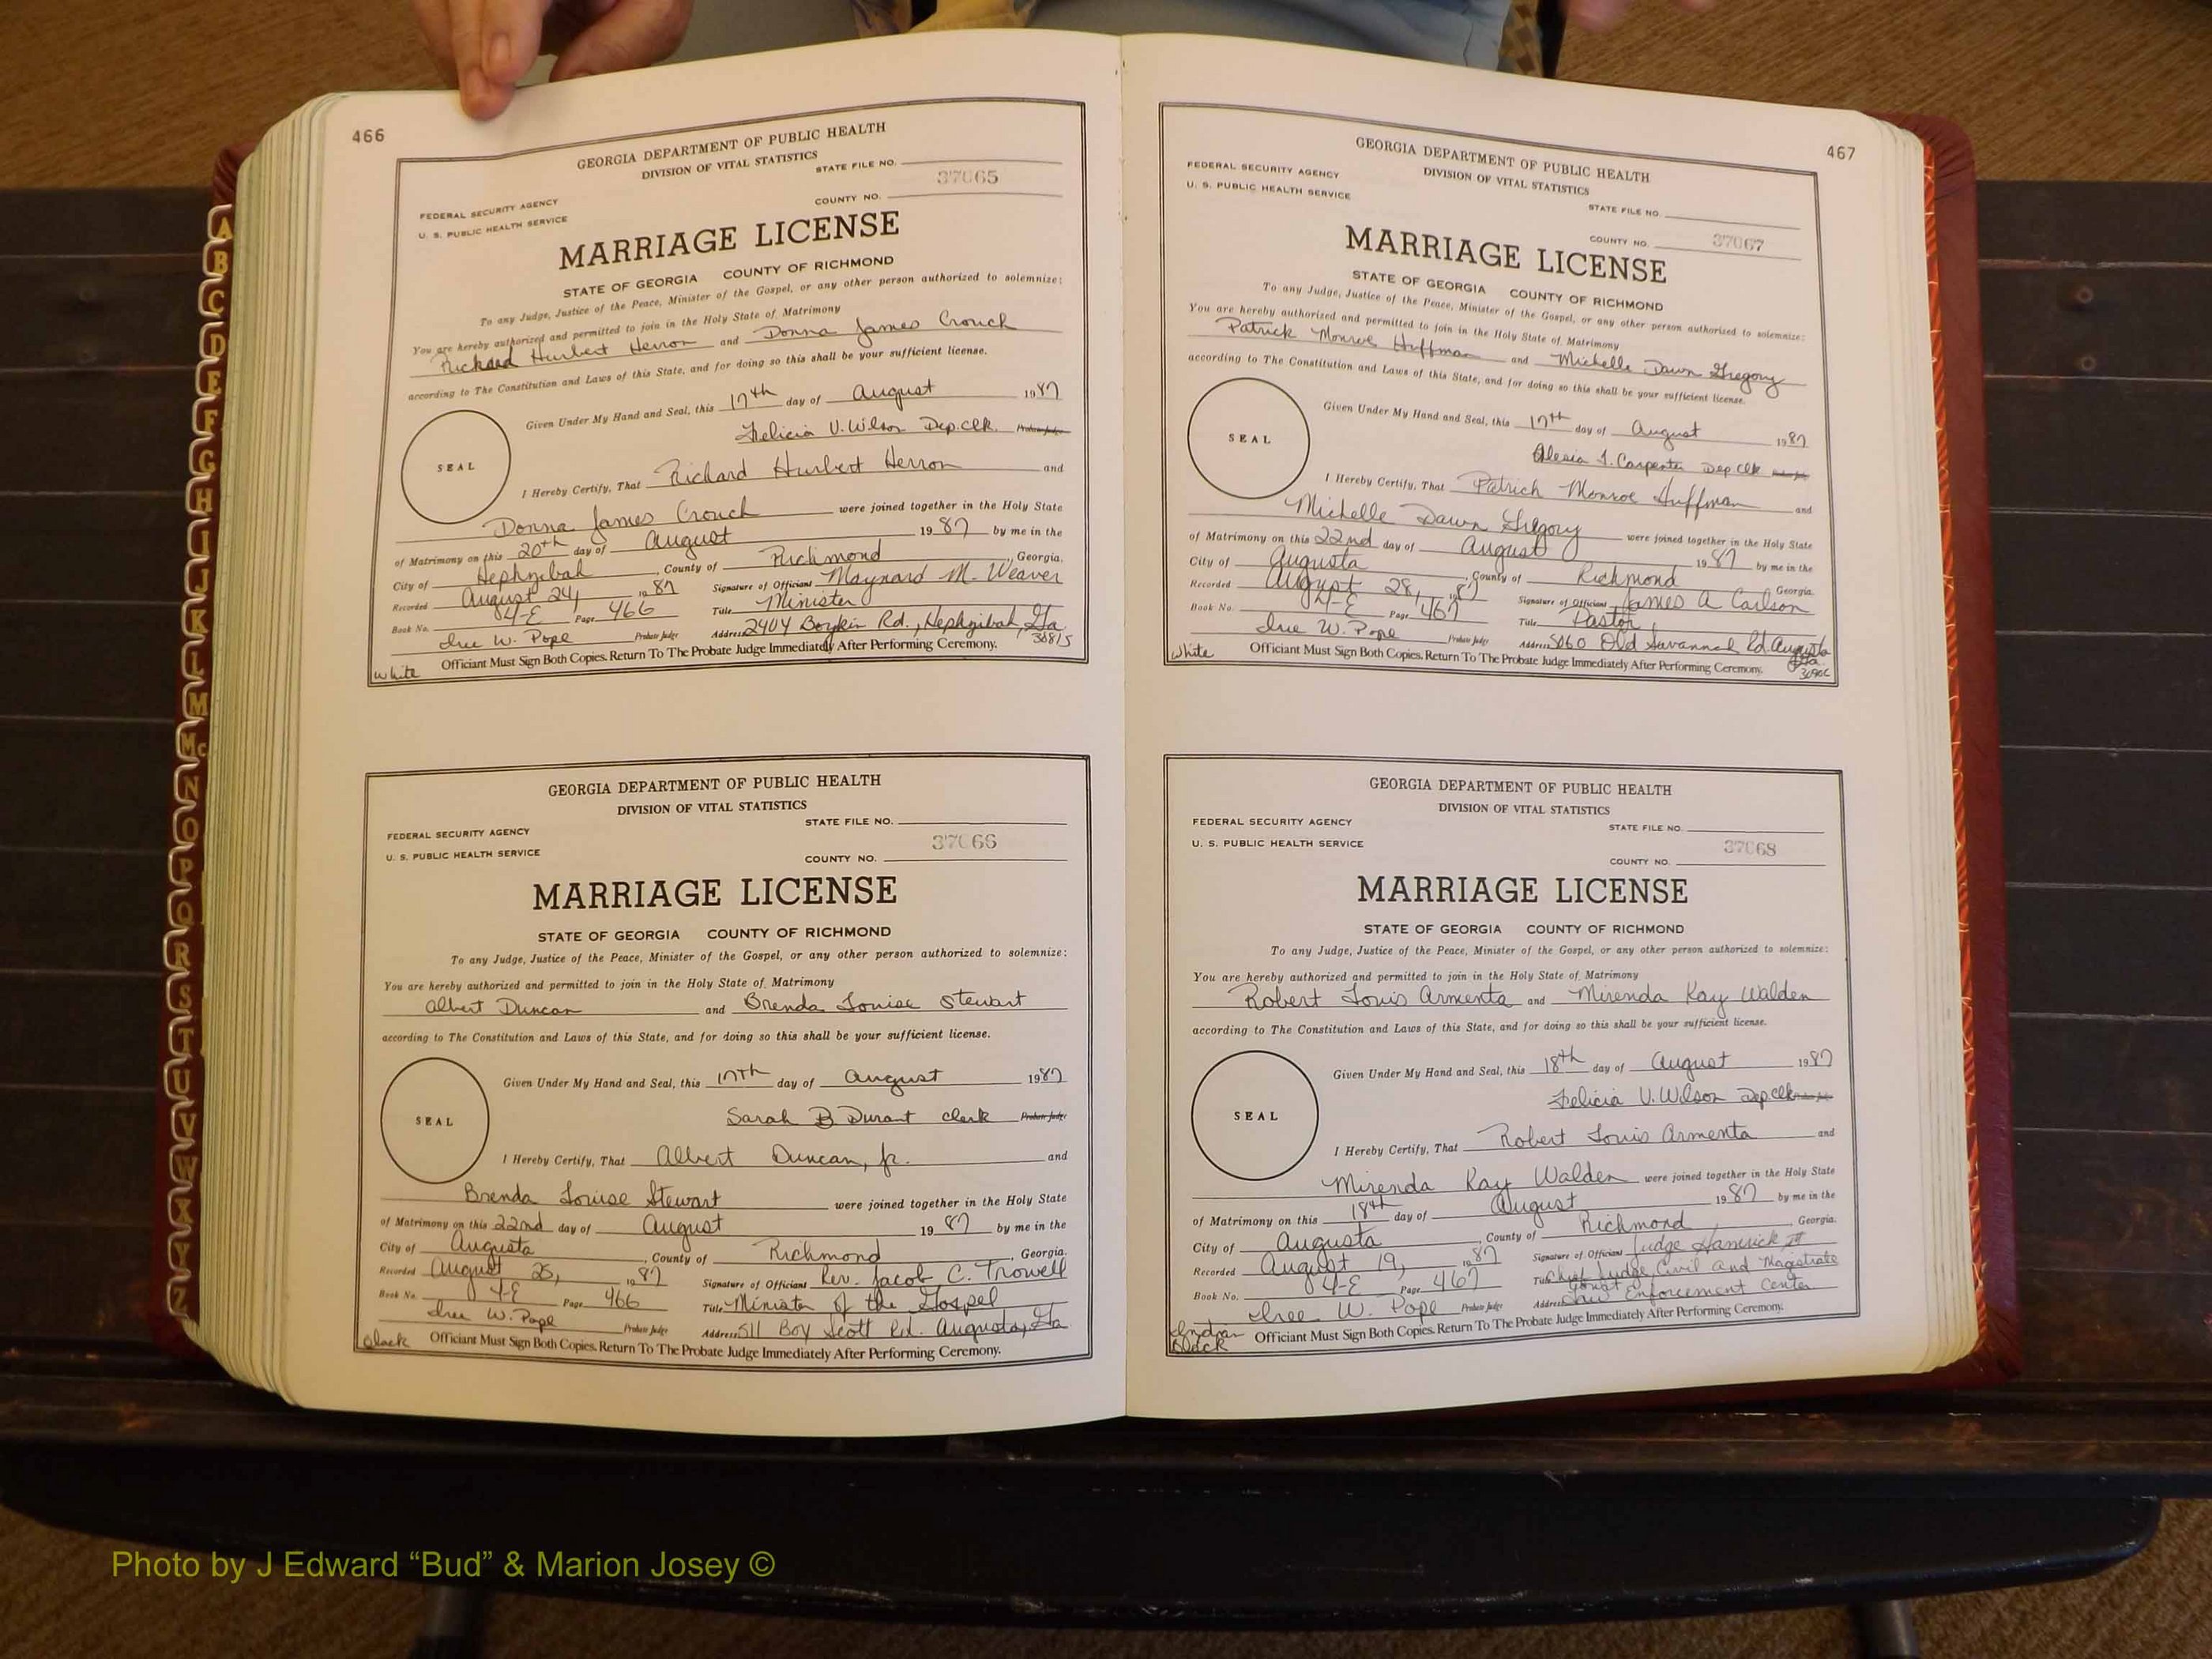 466
GEORGIA DEPARTMENT OF PUBLIC HEALTH
DIVISION OF VITAL STATISTICS
STATE FILE NO.
37065
FEDERAL SECURITY AGENCY
COUNTY NO.
U. S. PUBLIC HEALTH SERVICE
MARRIAGE LICENSE
STATE OF GEORGIA COUNTY OF RICHMOND
To any Judge, Justice of the Peace, Minister of the Gospel, or any other person authorized to solemnize:
You are hereby authorized and permitted to join in the Holy State of Matrimony
Richard Hurbert Herron and Donna James Crouch
according to The Constitution and Laws of this State, and for doing so this shall be your sufficient license.
Given Under My Hand and Seal, this 17th day of August 1987
Felicia V. Wilson Dep. Clk. Probate Judge
SEAL
I Hereby Certify, That Richard Hurbert Herron and
Donna James Crouch were joined together in the Holy State
of Matrimony on this 20th day of August 1987 by me in the
City of Hephzibah, County of Richmond, Georgia.
Recorded August 24, 1987 Signature of Officiant Maynard M. Weaver
Book No. 4-E Page 466 Title Minister
Probate Judge Address 2404 Boykin Rd., Hephzibah, Ga
W. Pope 30815
White Officiant Must Sign Both Copies. Return To The Probate Judge Immediately After Performing Ceremony.
GEORGIA DEPARTMENT OF PUBLIC HEALTH
DIVISION OF VITAL STATISTICS
STATE FILE NO.
FEDERAL SECURITY AGENCY
37066
U. S. PUBLIC HEALTH SERVICE
COUNTY NO.
MARRIAGE LICENSE
STATE OF GEORGIA COUNTY OF RICHMOND
To any Judge, Justice of the Peace, Minister of the Gospel, or any other person authorized to solemnize:
You are hereby authorized and permitted to join in the Holy State of Matrimony
Albert Duncan and Brenda Louise Stewart
according to The Constitution and Laws of this State, and for doing so this shall be your sufficient license.
Given Under My Hand and Seal, this 17th day of August 1987
Sarah B Durant clerk Probate Judge
SEAL
I Hereby Certify, That Albert Duncan, Jr. and
Brenda Louise Stewart were joined together in the Holy State
of Matrimony on this 22nd day of August 1987 by me in the
City of Augusta, County of Richmond, Georgia.
Recorded August 25, 1987 Signature of Officiant Rev. Jacob C. Trowell
Book No. 4-E Page 466 Title Minister of the Gospel
W. Pope Probate Judge Address 511 Boy Scott Rd. Augusta, Ga
Black Officiant Must Sign Both Copies. Return To The Probate Judge Immediately After Performing Ceremony.
467
GEORGIA DEPARTMENT OF PUBLIC HEALTH
FEDERAL SECURITY AGENCY
DIVISION OF VITAL STATISTICS
U. S. PUBLIC HEALTH SERVICE
STATE FILE NO.
COUNTY NO. 37067
MARRIAGE LICENSE
STATE OF GEORGIA COUNTY OF RICHMOND
To any Judge, Justice of the Peace, Minister of the Gospel, or any other person authorized to solemnize:
You are hereby authorized and permitted to join in the Holy State of Matrimony
Patrick Monroe Huffman and Michelle Dawn Gregory
according to The Constitution and Laws of this State, and for doing so this shall be your sufficient license.
Given Under My Hand and Seal, this 17th day of August 1987
Carpenter Dep. Clk Probate Judge
SEAL
I Hereby Certify, That Patrick Monroe Huffman and
Michelle Dawn Gregory were joined together in the Holy State
of Matrimony on this 22nd day of August 1987 by me in the
City of Augusta, County of Richmond Georgia.
Recorded August 28, 1987 Signature of Officiant James A Carlson
Book No. 4-E Page 467 Title Pastor
W. Pope Probate Judge Address Old Savannah Rd. Augusta
Ga.
White Officiant Must Sign Both Copies. Return To The Probate Judge Immediately After Performing Ceremony.
GEORGIA DEPARTMENT OF PUBLIC HEALTH
DIVISION OF VITAL STATISTICS
FEDERAL SECURITY AGENCY
STATE FILE NO.
U. S. PUBLIC HEALTH SERVICE
37068
COUNTY NO.
MARRIAGE LICENSE
STATE OF GEORGIA COUNTY OF RICHMOND
To any Judge, Justice of the Peace, Minister of the Gospel, or any other person authorized to solemnize:
You are hereby authorized and permitted to join in the Holy State of Matrimony
Robert Louis Armenta and Mirenda Kay Walden
according to The Constitution and Laws of this State, and for doing so this shall be your sufficient license.
Given Under My Hand and Seal, this 18th day of August 1987
Felicia V. Wilson Dep Clk Probate Judge
SEAL
I Hereby Certify, That Robert Louis Armenta and
Mirenda Kay Walden were joined together in the Holy State
of Matrimony on this 18th day of August 1987 by me in the
City of Augusta, County of Richmond, Georgia.
Recorded August 19, 1987 Signature of Officiant Judge Hamrick
Book No. 4-E Page 467 Title Chief Judge, Civil and Magistrate
W. Pope Probate Judge Address Law Enforcement Center
Indian
Black Officiant Must Sign Both Copies. Return To The Probate Judge Immediately After Performing Ceremony.
A
B
C
D
E
F
G
H
I
J
K
L
M
Mc
N
O
P
Q
R
S
T
U
V
W
X
Y
Z
Photo by J Edward “Bud” & Marion Josey ©